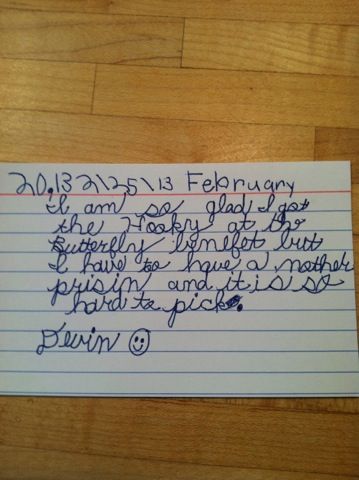 20.13 2\25\13 February
I am so glad I got
the Hooky at the
Butterfly benefet but
I have to have a nother
prisin and it is so
hard to pick.
Devin